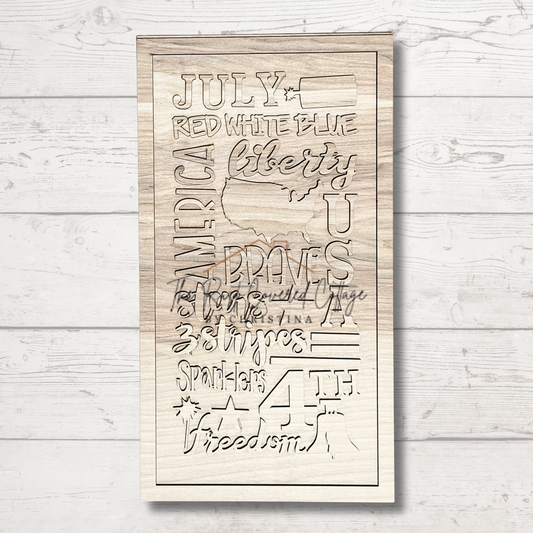 JULY
RED WHITE BLUE
AMERICA
liberty
USA
BRAVE
The Rose Covered Cottage
BY CHRISTINA
& stripes
Sparklers
4TH
freedom